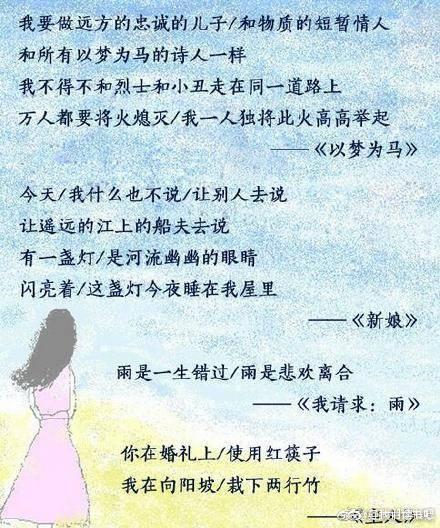 我要做远方的忠诚的儿子/和物质的短暂情人
和所有以梦为马的诗人一样
我不得不和烈士和小丑走在同一道路上
万人都要将火熄灭/我一人独将此火高高举起
——《以梦为马》
今天/我什么也不说/让别人去说
让遥远的江上的船夫去说
有一盏灯/是河流幽幽的眼睛
闪亮着/这盏灯今夜睡在我屋里
——《新娘》
雨是一生错过/雨是悲欢离合
——《我请求：雨》
你在婚礼上/使用红筷子
我在向阳坡/栽下两行竹